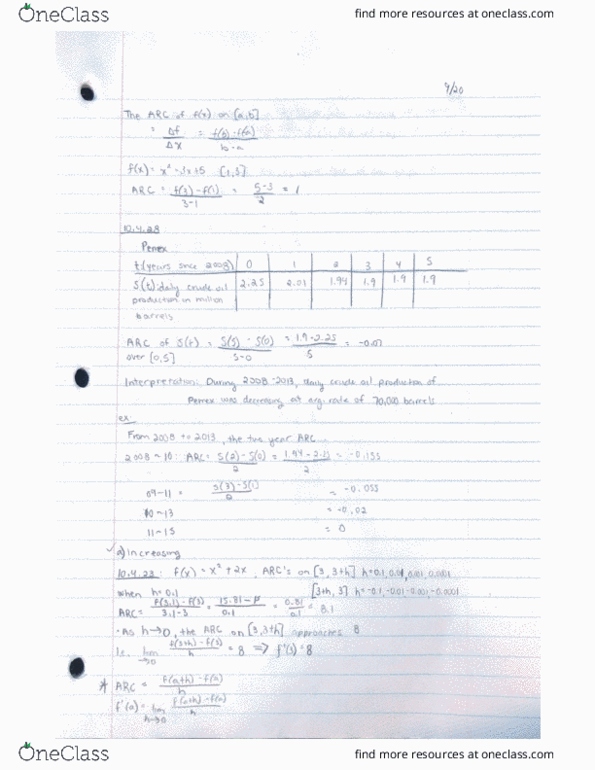 OneClass
find more resources at oneclass.com
9/20
The ARC of f(t) on [a,b]
= Δf/Δx = f(b)-f(a)/b-a
f(x) = x² - 3x + 5 [1,3]
ARC = f(3)-f(1)/3-1 = 5-3/2 = 1
10.4.28
Pemex
t(years since 2008) 0 1 2 3 4 5
S(t):daily crude oil production in million barrels 2.25 2.01 1.94 1.9 1.9 1.9
ARC of S(t) = S(5)-S(0)/5-0 = 1.9-2.25/5 = -0.07
over [0,5]
Interpretation: During 2008-2013, daily crude oil production of
Pemex was decreasing at avg. rate of 70,000 barrels
ex:
From 2008 to 2013, the two year ARC
2008-10: ARC = S(2)-S(0)/2 = 1.94-2.25/2 = -0.155
09-11 = S(3)-S(1)/2 = -0.055
10-13 = -0.02
11-15 = 0
a) increasing
10.4.23: f(x) = x² + 2x, ARC's on [3, 3+h] h=0.1, 0.01, 0.001, 0.0001
when h=0.1 [3+h, 3] h=-0.1, -0.01, -0.001, -0.0001
ARC = f(3.1)-f(3)/3.1-3 = 15.81-15/0.1 = 0.81/0.1 = 8.1
·As h→0, the ARC on [3,3+h] approaches 8
i.e. lim h→0 f(3+h)-f(3)/h = 8 ⇒ f'(3)=8
* ARC = f(a+h)-f(a)/h
f'(a) = lim h→0 f(a+h)-f(a)/h
OneClass
find more resources at oneclass.com